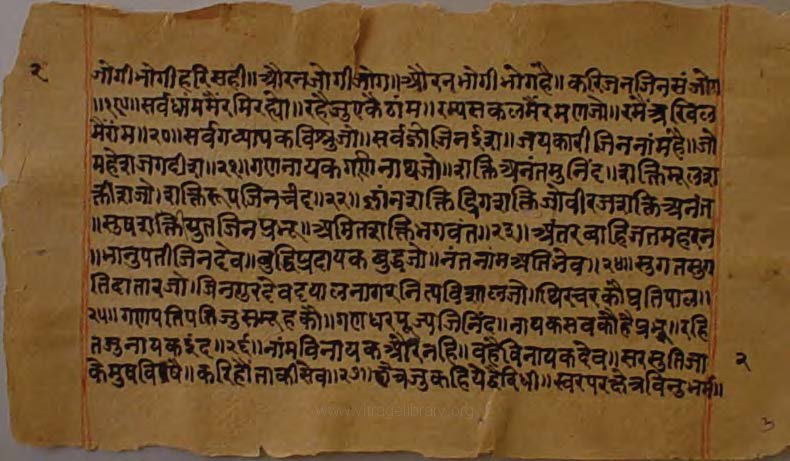 २
जोगी भोगी हरि सही॥ औरन जोगी जोग॥ औरन भोगी भोग है॥ करि जन जिन संजोग
॥१९॥ सर्व धाम मैं रमि रह्यौ॥ रहै जु एकै ठांम॥ रम्य सकल मैं रमण जो॥ रमैं अखिल
मैं रांम॥२०॥ सर्वग व्यापक विश्नु जो॥ सर्वज्ञो जिन ईश॥ जयकारी जिन नांम है॥ जो
महेश जगदीश॥२१॥ गणनायक गणि नाथ जो॥ शक्ति अनंत मुनिंद॥ शक्ति मूल श
क्तीश जो। शक्ति रूप जिनचंद॥२२॥ ज्ञांन शक्ति द्रिग शक्ति जो वीरज शक्ति अनंत
॥ सुष शक्ति युत जिन प्रभू॥ अमित शक्ति भगवंत॥२३॥ अंतर बाहिज तम हरन
॥ भानुपती जिनदेव॥ बुद्धि प्रदायक बुद्ध जो॥ नंत नांम अति भेव॥२४॥ सुगत सुग
ति दातार जो। जिन गुर देव दयाल नागर नित्य विशाल जो॥ थिर चर कौ प्रतिपाल॥
२५॥ गणपति पति जु समूह कौ॥ गणधर पूज्य जिनिंद॥ नायक सब कौ है प्रभू॥ रहि
त जु नायक इंद॥२६॥ नांम विनायक और नहि॥ वहै विनायक देव॥ सरसुति जा
के मुष विषै॥ करि हौं ताकी सेव॥२७॥ जु कहिये है विधी॥ स्वर पर
२
३
www.vitragelibrary.org